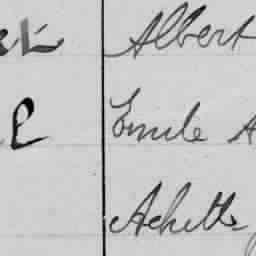 Albert
Emile A
Achille